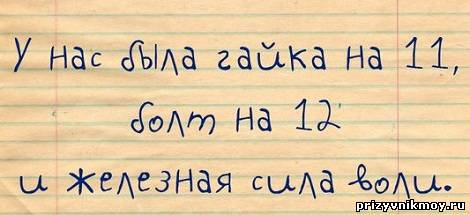 У нас была гайка на 11,
болт на 12
и железная сила воли.
prizyvnikmoy.ru